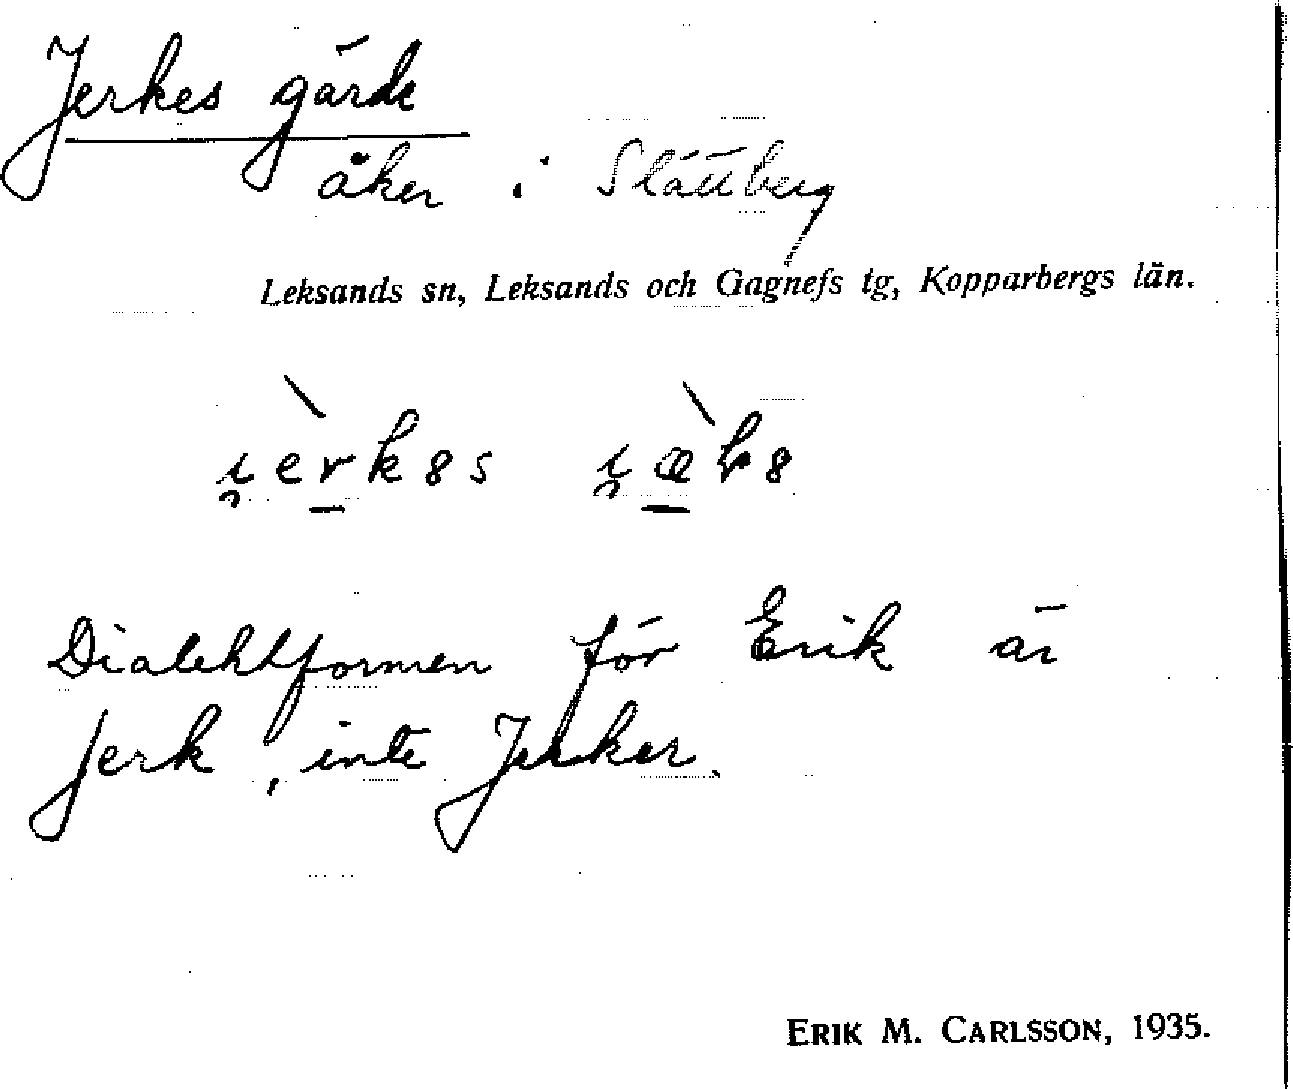 Jerkes gärde
åker i Slättberg
Leksands sn, Leksands och Gagnefs tg, Kopparbergs län.
Dialektformen för Erik är
Jerk, inte Jerker.
ERIK M. CARLSSON, 1935.